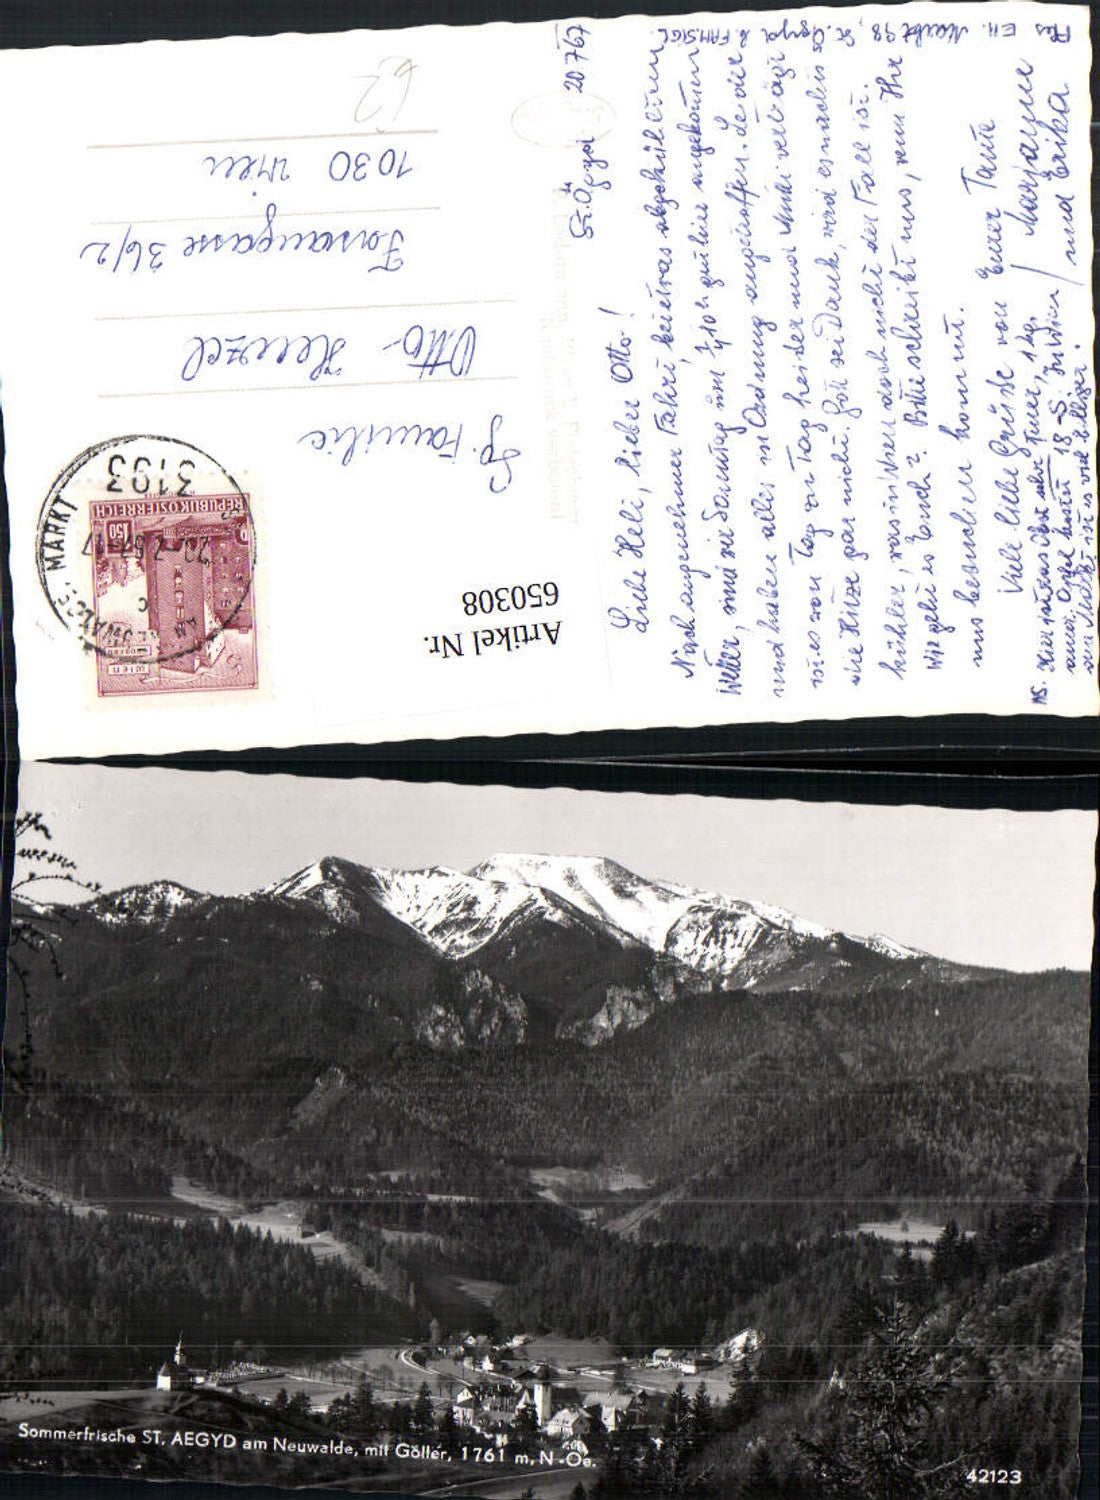 Abs. E.H. Markt 98, St. Aegyd b. FAM. Sigl.
St. Aegyd 20.7.67
Liebe Heli, lieber Otto!
Nach angenehmer Fahrt, bei etwas abgekühltem
Wetter, sind wir Sonntag um ½10h gut hier angekommen
und haben alles in Ordnung angetroffen. Leider
ist es von Tag zu Tag heißer und Mutti verträgt
die Hitze gar nicht. Gott sei Dank, wird es nachts
kühler, was in Wien doch nicht der Fall ist.
Wie geht es Euch? Bitte schreibt uns, wenn Ihr
uns besuchen kommt.
Viele liebe Grüße von Eurer Tante
Marianne
und Erika
NS. Hier ist das Obst sehr teuer, 1 kg
kostet 18 S. In Wien
ist es viel billiger.
Sp. Familie
Otto Henzel
Fasangasse 36/2
1030 Wien
62
REPUBLIK ÖSTERREICH
1.50
WIEN
3193
MARKT
20.7.67-17
Artikel Nr.
650308
Sommerfrische ST. AEGYD am Neuwalde, mit Göller, 1761 m, N.-Oe.
42123